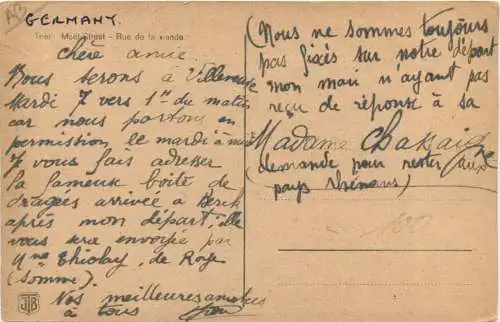 GERMANY.
Trier Meet Street - Rue de la viande.
chère amie
Nous serons à Villeneuse
Mardi 7 vers 1h du matin
car nous partons en
permission le mardi à midi
7 vous fais adresser
la fameuse boîte de
dragées arrivée à Berck
après mon départ, elle
vous sera envoyée par
Mme Thiolay, de Roye
(Somme).
Nos meilleures amitiés
à tous
(Nous ne sommes toujours
pas fixés sur notre départ
mon mari n'ayant pas
reçu de réponse à sa
Madame
demande pour rester aux
pays rhénans)
100
JTB